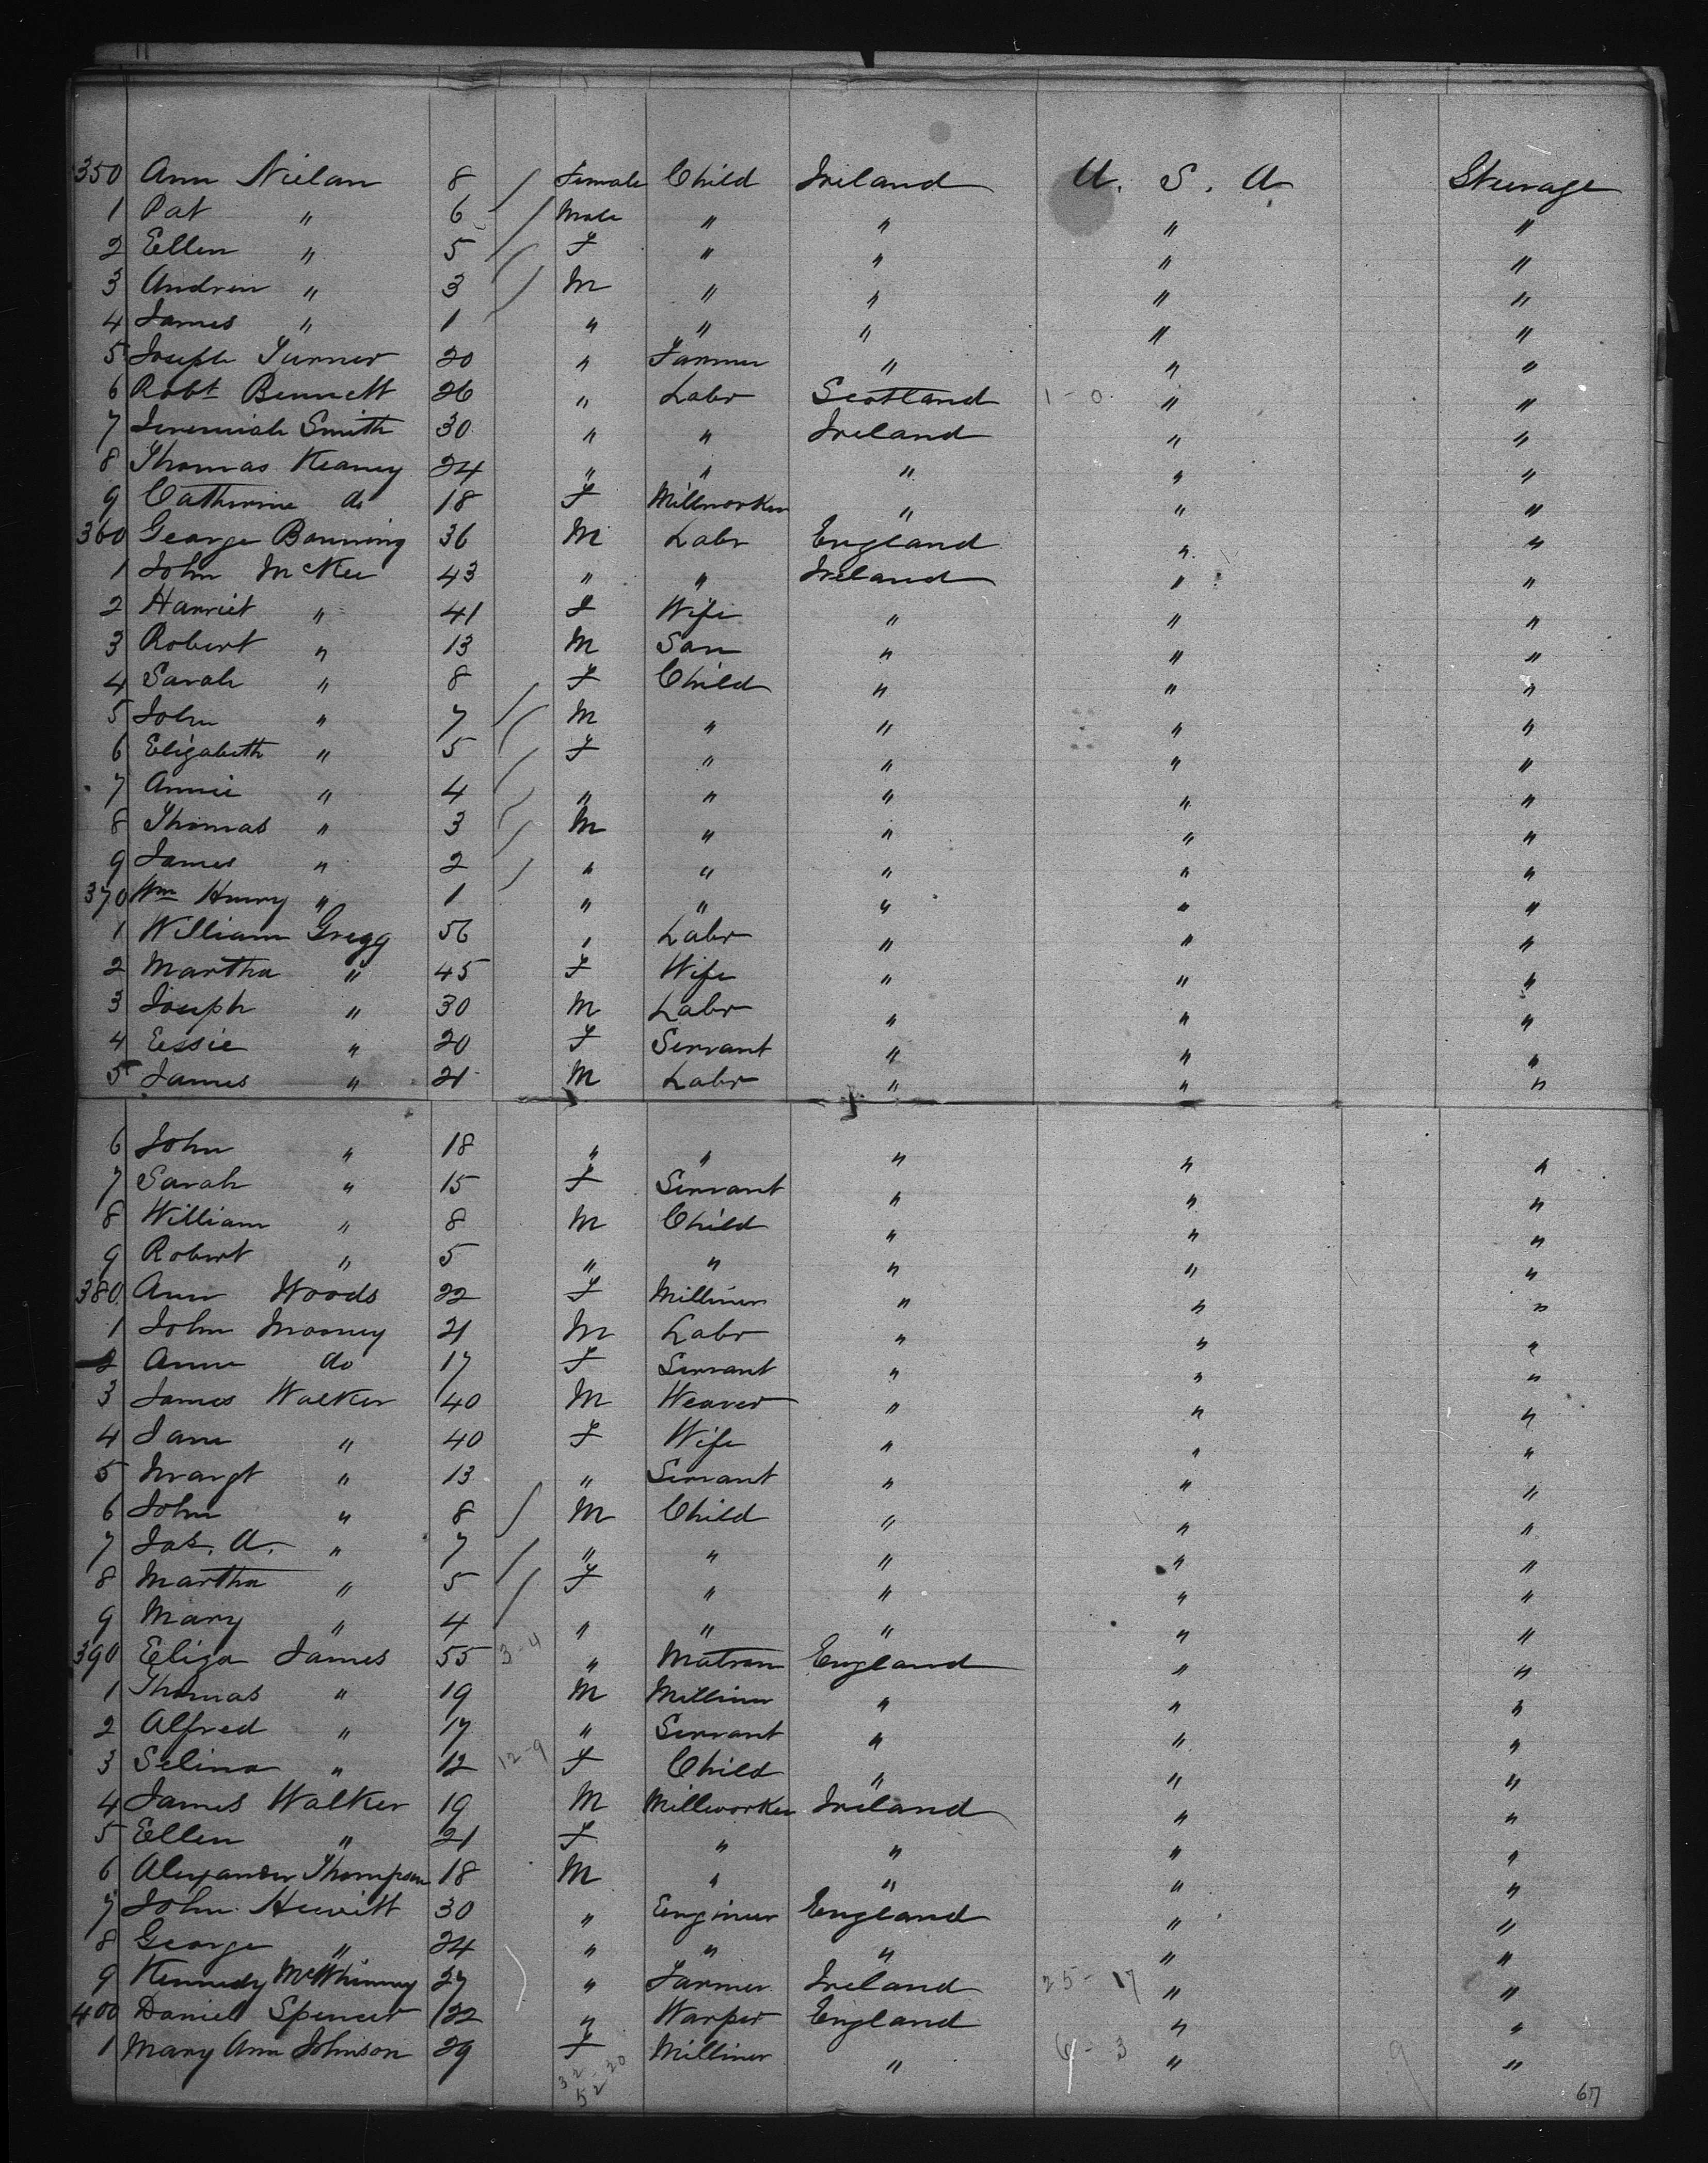 350 Ann Nielan 8 Female Child Ireland U. S. A Steerage
1 Pat " 6 Male " " " "
2 Ellen " 5 F " " " "
3 Andrew " 3 M " " " "
4 James " 1 " " " " "
5 Joseph Turner 20 " Farmer " " "
6 Robt Bennett 26 " Labr Scotland 1-0 " "
7 Jeremiah Smith 30 " " Ireland " "
8 Thomas Keaney 24 " " " " "
9 Catherine do 18 F Millworker " " "
360 George Banning 36 M Labr England " "
1 John McKee 43 " " Ireland " "
2 Harriet " 41 F Wife " " "
3 Robert " 13 M Son " " "
4 Sarah " 8 F Child " " "
5 John " 7 M " " " "
6 Elizabeth " 5 F " " " "
7 Annie " 4 " " " " "
8 Thomas " 3 M " " " "
9 James " 2 " " " " "
370 Wm Henry " 1 " " " " "
1 William Gregg 56 " Labr " " "
2 Martha " 45 F Wife " " "
3 Joseph " 30 M Labr " " "
4 Essie " 20 F Servant " " "
5 James " 21 M Labr " " "
6 John " 18 " " " " "
7 Sarah " 15 F Servant " " "
8 William " 8 M Child " " "
9 Robert " 5 " " " " "
380 Ann Woods 22 F Milliner " " "
1 John Mooney 21 M Labr " " "
2 Anne do 17 F Servant " " "
3 James Walker 40 M Weaver " " "
4 Jane " 40 F Wife " " "
5 Margt " 13 " Servant " " "
6 John " 8 M Child " " "
7 Jas. A. " 7 " " " " "
8 Martha " 5 F " " " "
9 Mary " 4 " " " " "
390 Eliza James 55 3-4 " Matron England " "
1 Thomas " 19 M Milliner " " "
2 Alfred " 17 " Servant " " "
3 Selina " 12 12-9 F Child " " "
4 James Walker 19 M Millworker Ireland " "
5 Ellen " 21 F " " " "
6 Alexander Thompson 18 M " " " "
7 John Hewitt 30 " Engineer England " "
8 George " 24 " " " " "
9 Kennedy McWhinney 27 " Farmer Ireland 25-17 " "
400 Daniel Spencer 22 " Warper England " "
1 Mary Ann Johnson 29 F Milliner " 6-3 " 9 "
32 20
52
67